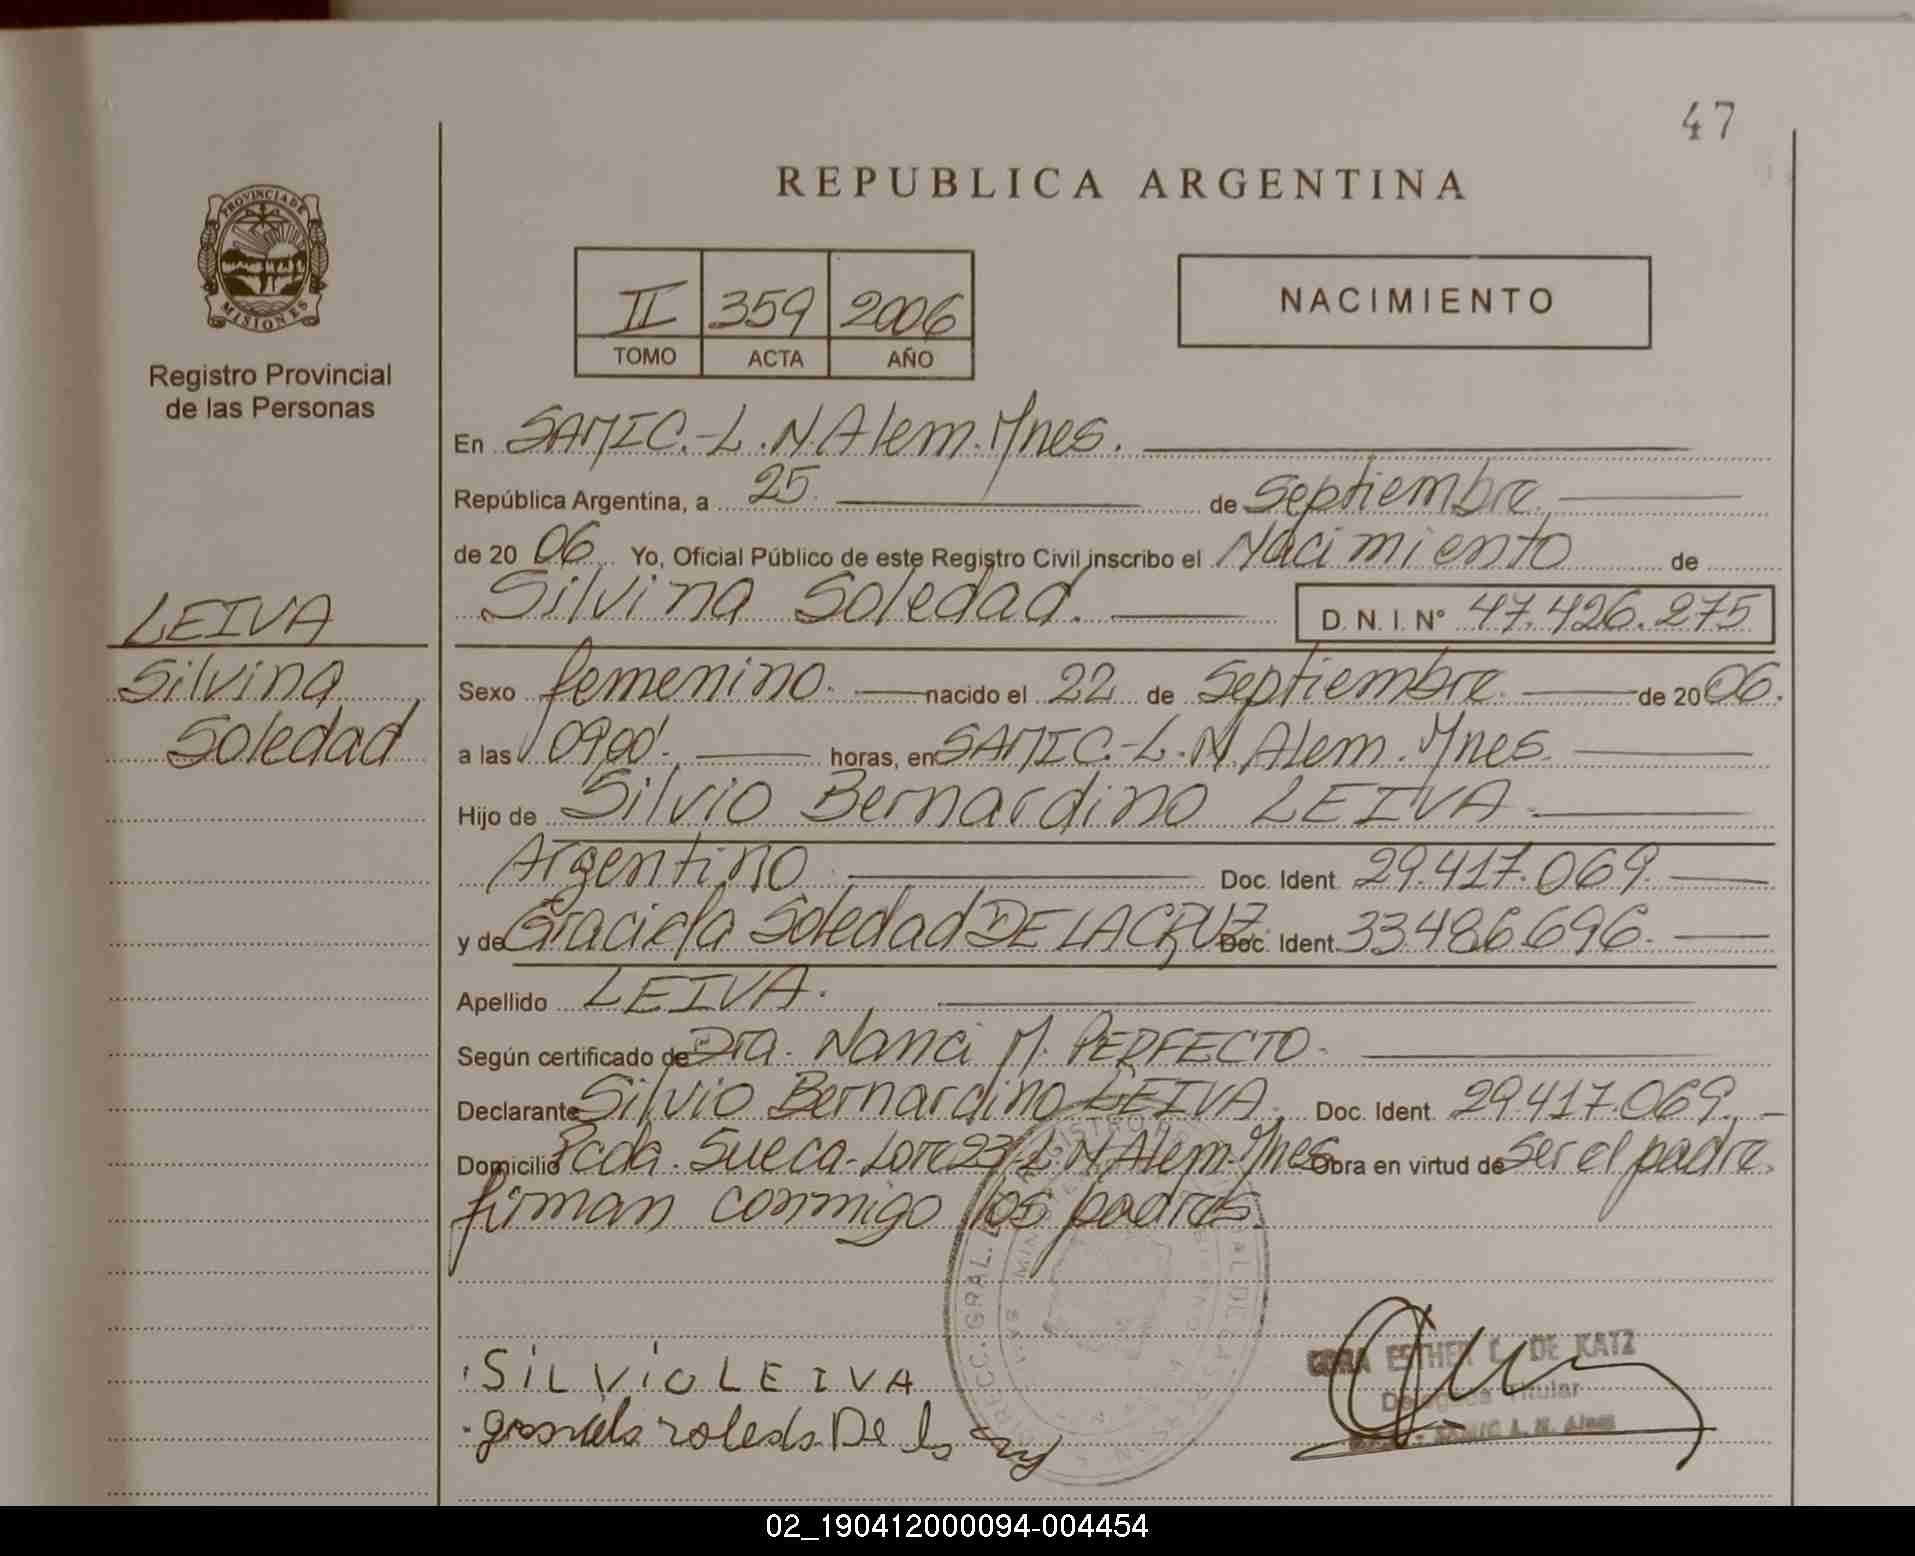 47
PROVINCIA DE
MISIONES
Registro Provincial
de las Personas
LEIVA
Silvina
Soledad
REPUBLICA ARGENTINA
II 359 2006
TOMO ACTA AÑO
NACIMIENTO
En SAMIC.-L.N.Alem.Mnes.
República Argentina, a 25. de Septiembre.
de 20 06 Yo, Oficial Público de este Registro Civil inscribo el Nacimiento de
Silvina Soledad. D. N. I. N° 47.426.275
Sexo femenino. nacido el 22 de Septiembre. de 20 06.
a las 0900'. horas, en SAMIC.-L.N.Alem.Mnes.
Hijo de Silvio Bernardino LEIVA
Argentino Doc. Ident. 29.417.069.
y de Graciela Soledad DE LA CRUZ. Doc. Ident. 33486696.
Apellido LEIVA.
Según certificado de Dra. Nanci M. PERFECTO.
Declarante Silvio Bernardino LEIVA. Doc. Ident. 29.417.069.
Domicilio Pcda. Sueca-Lote 23 L.N.Alem-Mnes Obra en virtud de Ser el padre.
firman conmigo los padres.
SILVIO LEIVA
ESTHER C. DE KATZ
Titular
De la
L. N. Alem
02_190412000094-004454